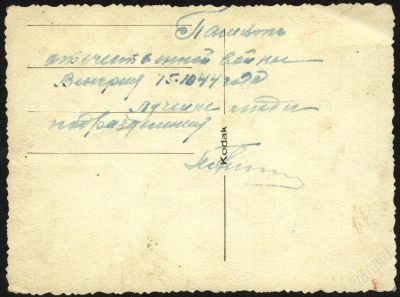 Память
отечественной войны
Венгрия 15.10 44 года
лучшие люди
подразделения
Kodak